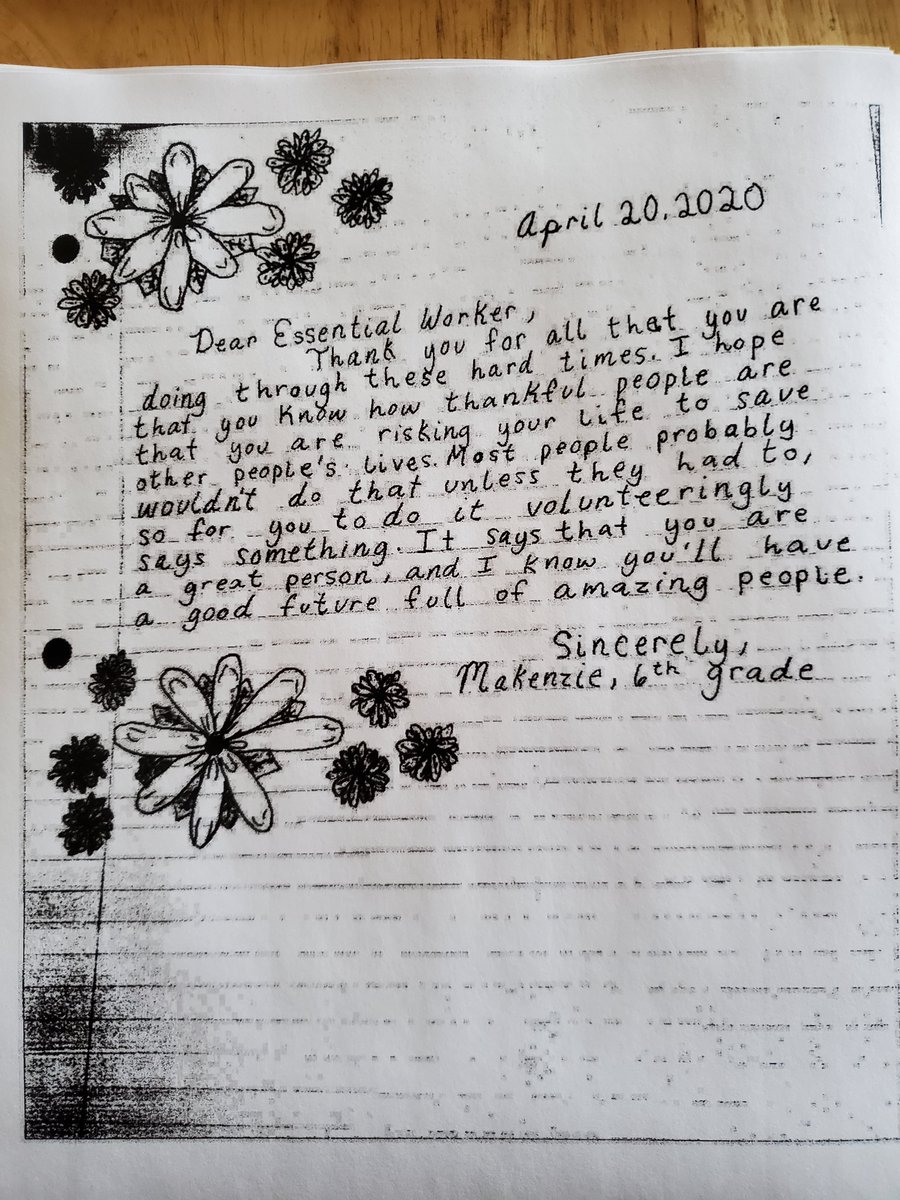 April 20, 2020
Dear Essential Worker,
Thank you for all that you are
doing through these hard times. I hope
that you know how thankful people are
that you are risking your life to save
other people's lives. Most people probably
wouldn't do that unless they had to,
so for you to do it volunteeringly
says something. It says that you are
a great person, and I know you'll have
a good future full of amazing people.
Sincerely,
Makenzie, 6th grade